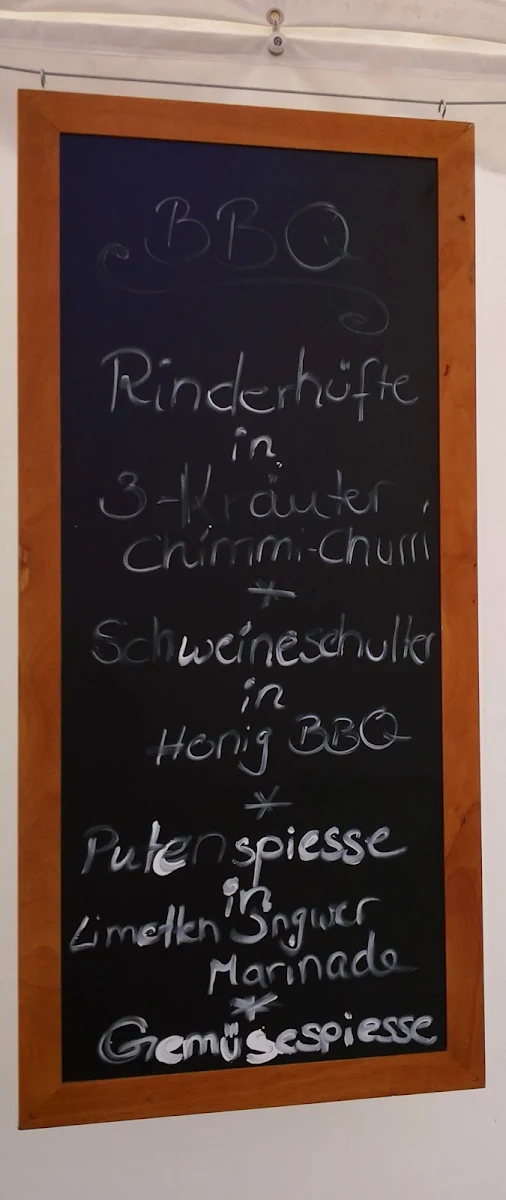 BBQ
Rinderhüfte
in
3-Kräuter
Chimmi-Churri
*
Schweineschulter
in
Honig BBQ
*
Putenspiesse
in
Limetten Ingwer
Marinade
*
Gemüsespiesse